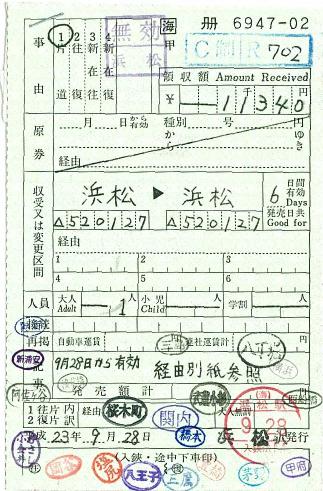 海 冊 6947-02
甲
C制R 702
無効
浜松
事由
1 2 3 4
片道 往復 新在 新在往復
領収額 Amount Received
¥ 11340 円
原券
月 日から有効 種別 号 から ゆき
経由
収受又は変更区間
浜松 ▶ 浜松
6 日間有効 Days
発売日共 Good for
△520127 △520127
経由
1 2 3
4 5 6
人員 大人 Adult 1人 小児 Child 人 学割
再掲 自動車運賃 連社運賃計
新浦安
9月28日から有効
経由別紙参照
八丁堀
記事
阿佐ケ谷
発売額計
武蔵小杉
1片内 2往訳 経由
桜木町
大人無割
関内
平成23年9月28日
橋本
浜松 駅発行
(海) 浜松駅 9.-28
(入鋏・途中下車印)
八王子
茅野
甲府